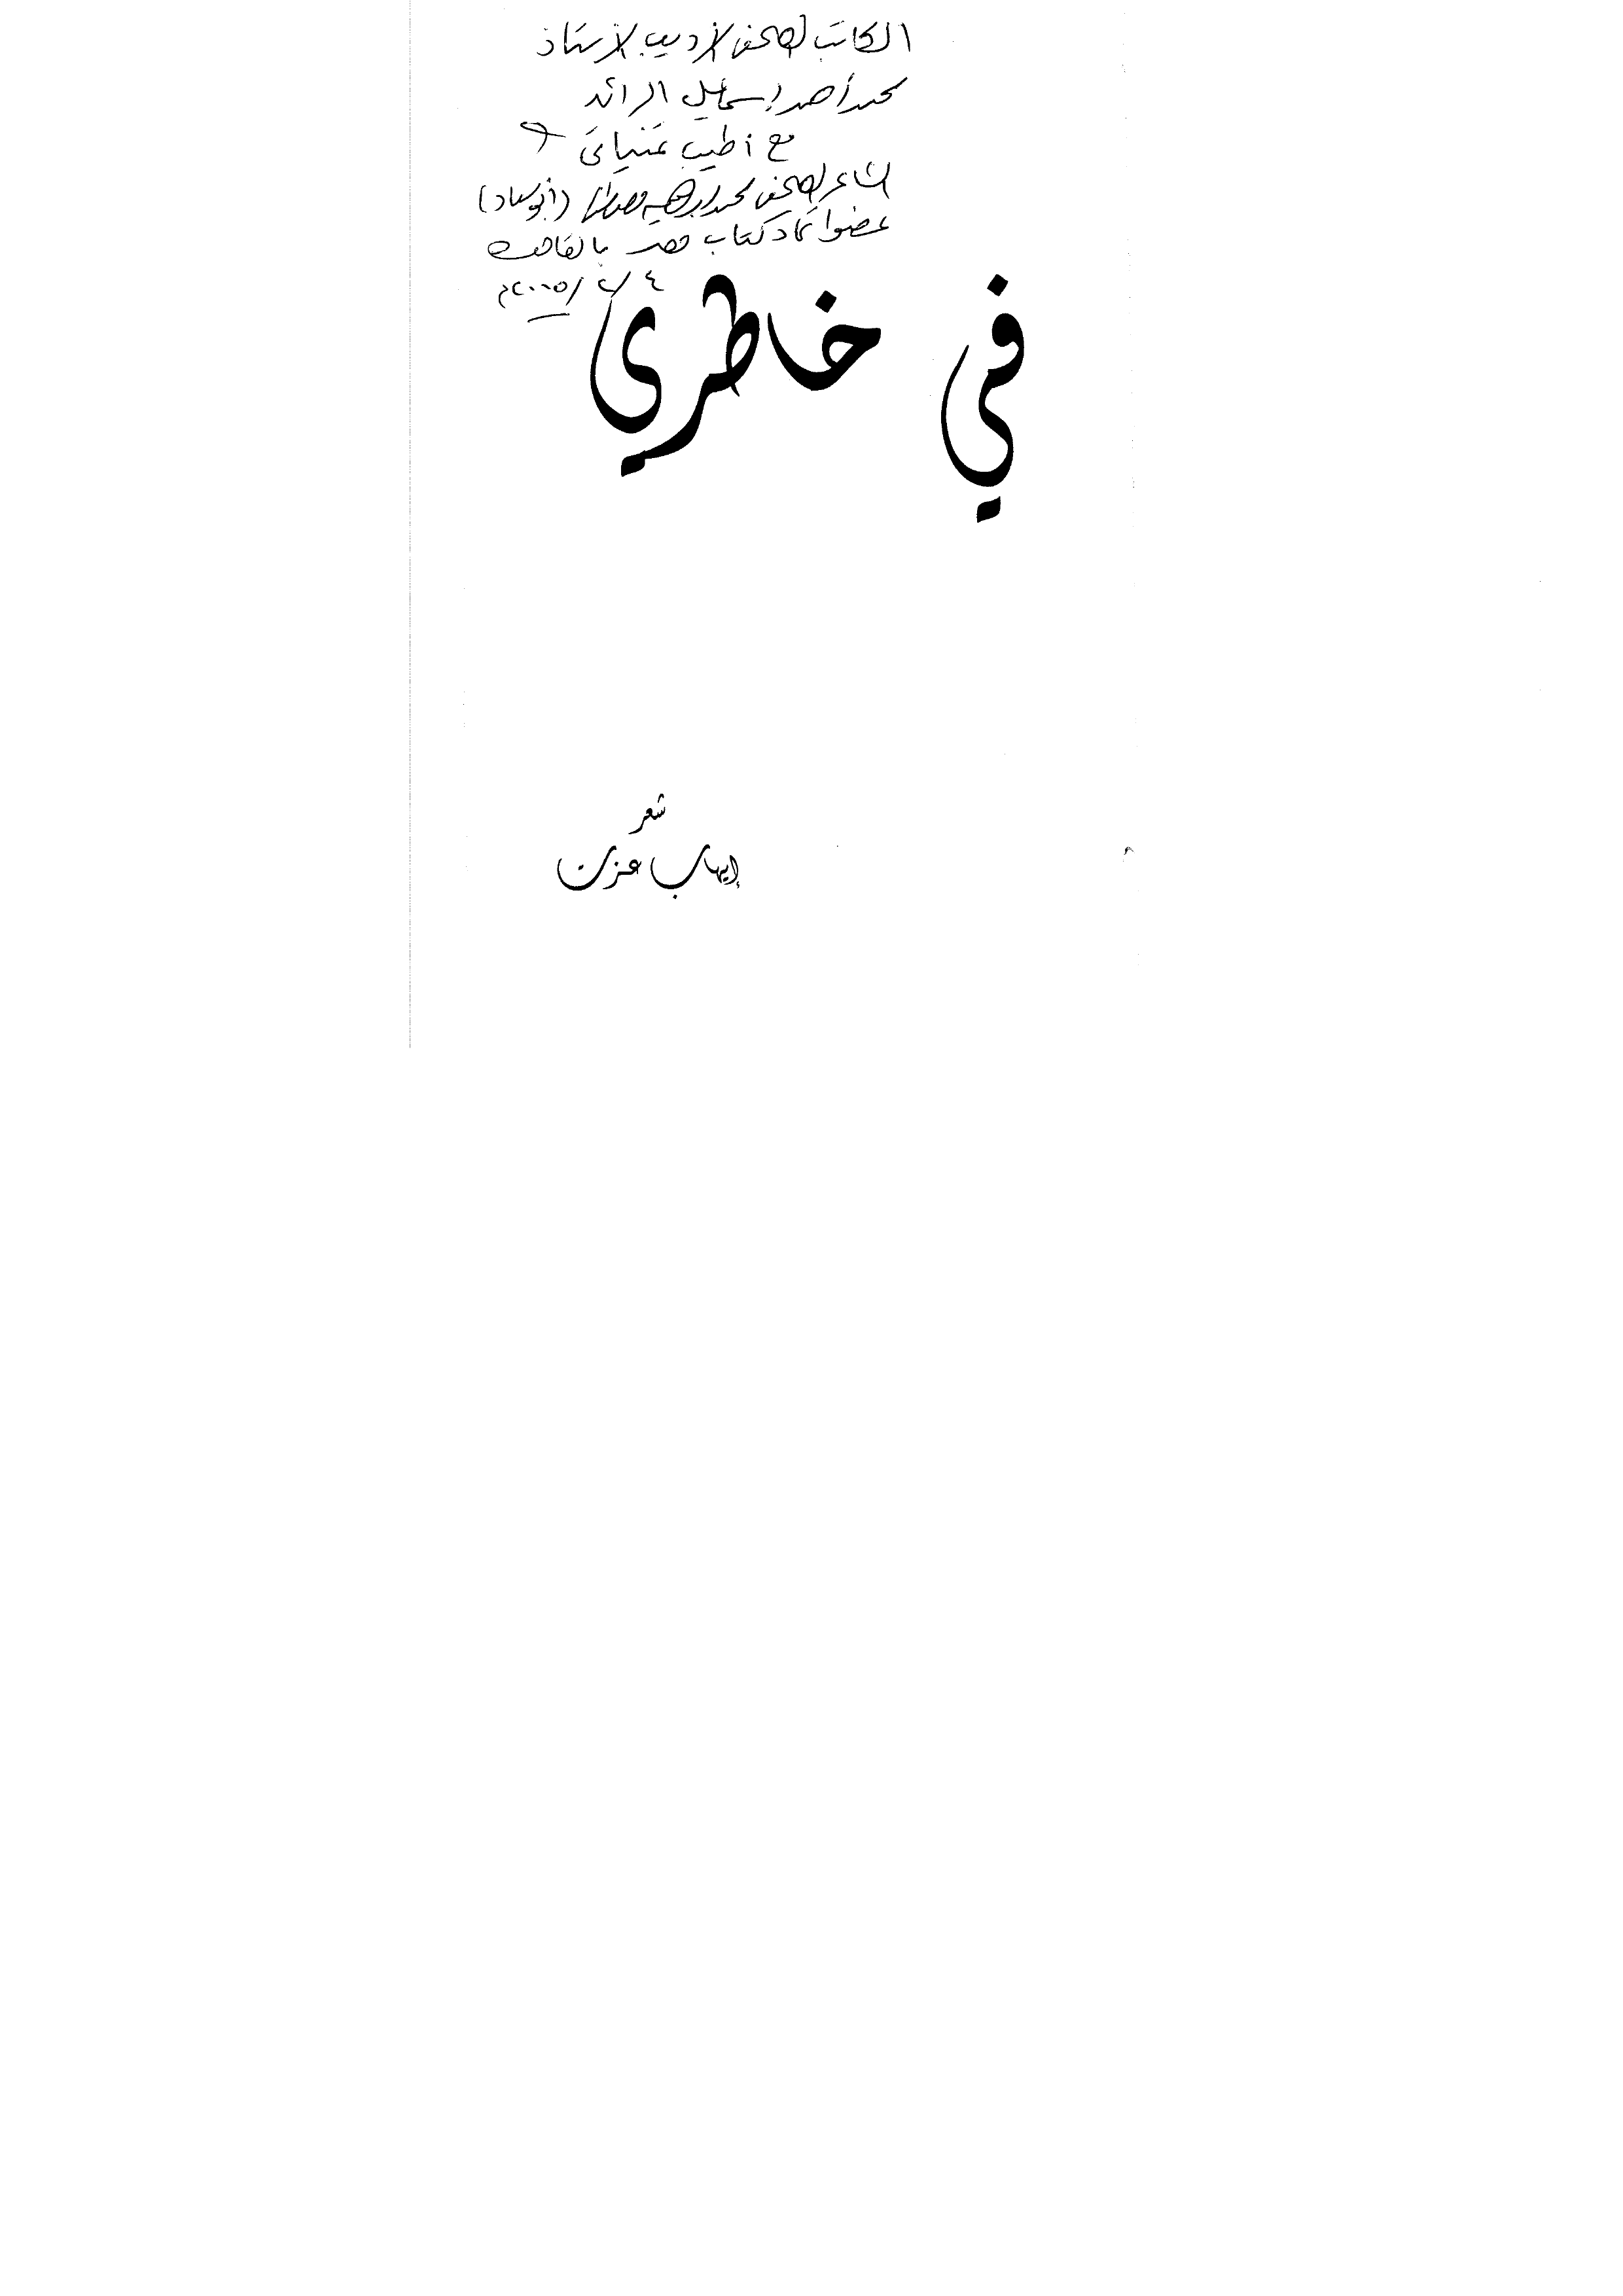 الكاتب الصحفى الأديب الأستاذ
محمد أحمد إسماعيل الرائد
مع أطيب تمنياتى
الشاعر الصحفى محمد ابراهيم
عضو اتحاد كتاب مصر بالقاهرة
٤/٢/٢٠٠٥م
في خاطري
شعر
إيهاب عزت